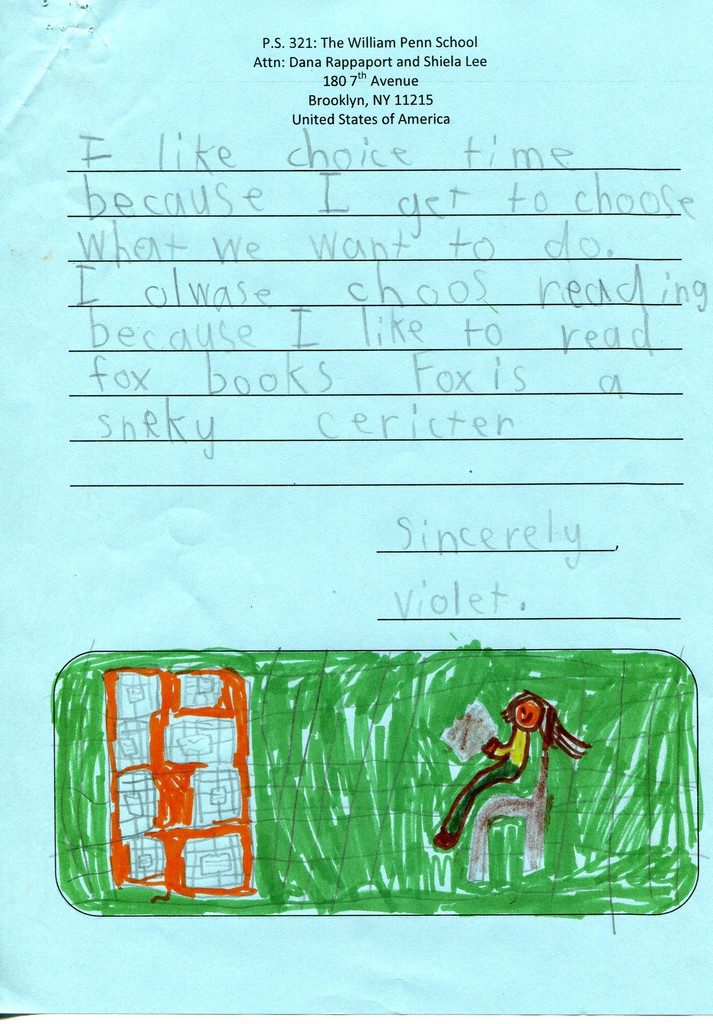 P.S. 321: The William Penn School
Attn: Dana Rappaport and Shiela Lee
180 7th Avenue
Brooklyn, NY 11215
United States of America
I like choice time
because I get to choose
what we want to do.
I olwase choos reading
because I like to read
fox books Fox is a
sneky cericter
Sincerely,
violet.